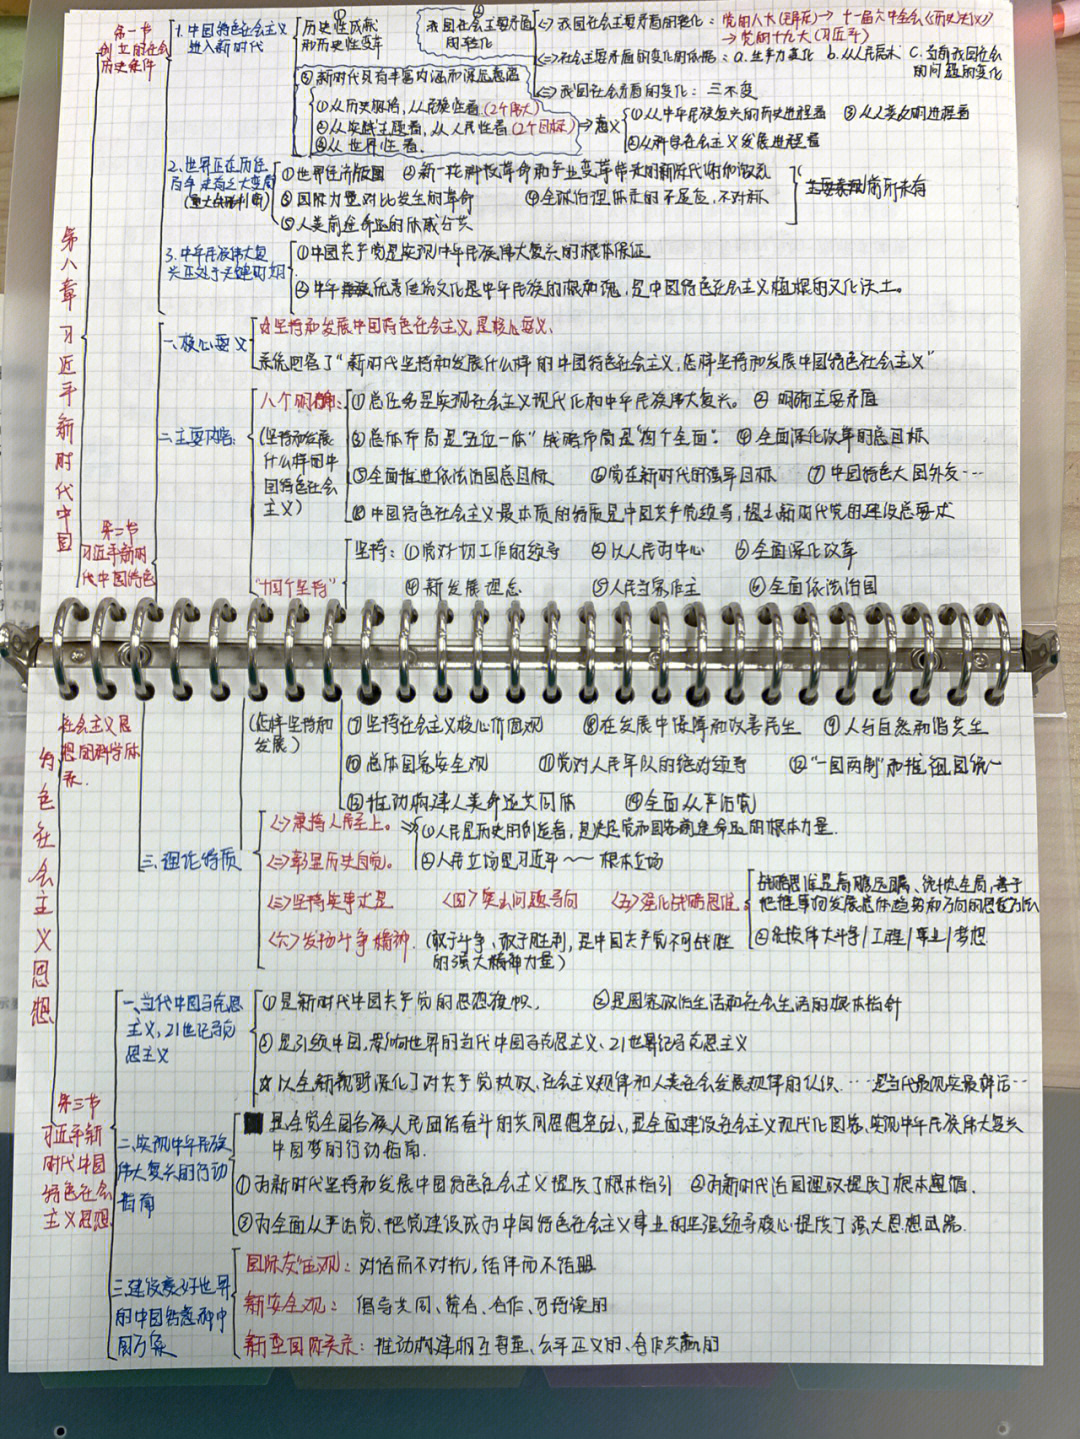 第八章 习近平新时代中国
第一节
创立的社会
历史条件
1. 中国特色社会主义
进入新时代
① 历史性成就
和历史性变革
② 我国社会主要矛盾
的转化
<一> 我国社会主要矛盾的转化：党的八大 → 十一届六中全会《历史决议》
→ 党的十九大（习近平）
<二> 社会主要矛盾的变化的依据：a. 生产力变化 b. 从人民需求 C. 当前我国社会
的问题的变化
<三> 我国社会矛盾的变化：三不变
③ 新时代具有丰富内涵和深层意蕴
①从历史脉络，从民族性看（2个伟大）
②从实践主题看，从人民性看（2个目标）
③从世界性看.
→ 意义
①从中华民族复兴的历史进程看 ③从人类文明进程看
②从科学社会主义发展进程看
2. 世界正在历经
百年未有之大变局
①世界经济版图 ②新一轮科技革命和产业变革带来的新陈代谢和激烈
③国际力量对比发生的革命 ④全球治理体系的不适应，不对称
⑤人类前途命运的休戚与共
前所未有
3. 中华民族伟大复
兴正处于关键时期
①中国共产党是实现中华民族伟大复兴的根本保证
②中华优秀传统文化是中华民族的根和魂，是中国特色社会主义植根的文化沃土。
第二节
习近平新时
代中国特色
一、核心要义
☆坚持和发展中国特色社会主义是核心要义、
系统回答了“新时代坚持和发展什么样的中国特色社会主义，怎样坚持和发展中国特色社会主义”
二、主要内容：
八个明确：
（坚持和发展
什么样的中
国特色社会
主义）
①总任务是实现社会主义现代化和中华民族伟大复兴。 ② 明确主要矛盾
③总体布局是“五位一体”战略布局是“四个全面”： ④全面深化改革的总目标
⑤全面推进依法治国总目标 ⑥党在新时代的强军目标 ⑦ 中国特色大国外交…
⑧中国特色社会主义最本质的特质是中国共产党领导，提出新时代党的建设总要求
“十四个坚持”
坚持：①党对一切工作的领导 ②以人民为中心 ③全面深化改革
④新发展理念 ⑤人民当家作主 ⑥全面依法治国
特色社会主义思想
社会主义思
想的科学体
系.
（怎样坚持和
发展）
⑦坚持社会主义核心价值观 ⑧在发展中保障和改善民生 ⑨人与自然和谐共生
⑩总体国家安全观 ⑪党对人民军队的绝对领导 ⑫“一国两制”和推祖国统一
⑬推动构建人类命运共同体 ⑭全面从严治党
三、理论特质
<一>秉持人民至上。
①人民是历史的创造者，是决定党和国家前途命运的根本力量.
<二>彰显历史自觉。
②人民立场是习近平~~根本立场
<三>坚持实事求是 <四>突出问题导向 <五>强化战略思维
战略思维是高瞻远瞩、统揽全局，善于
把握事物发展总体趋势和方向的思维方法
②统揽伟大斗争/工程/事业/梦想
<六>发扬斗争精神.（敢于斗争、敢于胜利，是中国共产党不可战胜
的强大精神力量）
第三节
习近平新
时代中国
特色社会
主义思想
一、当代中国马克思
主义，21世纪马克
思主义
①是新时代中国共产党的思想旗帜. ②是国家政治生活和社会生活的根本指针
③是引领中国，影响世界的当代中国马克思主义、21世界纪马克思主义
☆以全新视野深化了对共产党执政、社会主义规律和人类社会发展规律的认识、…是当代最现实最鲜活…
二、实现中华民族
伟大复兴的行动
指南
是全党全国各族人民团结奋斗的共同思想基础，是全面建设社会主义现代化国家、实现中华民族伟大复兴
中国梦的行动指南.
①为新时代坚持和发展中国特色社会主义提供了根本指引 ②为新时代治国理政提供了根本遵循.
③为全面从严治党、把党建设成为中国特色社会主义事业的坚强领导核心提供了强大思想武器.
三、建设美好世界
的中国智慧和中
国方案
国际交往观：对话而不对抗，结伴而不结盟
新安全观：倡导共同、综合、合作、可持续的
新型国际关系：推动构建相互尊重、公平正义的、合作共赢的